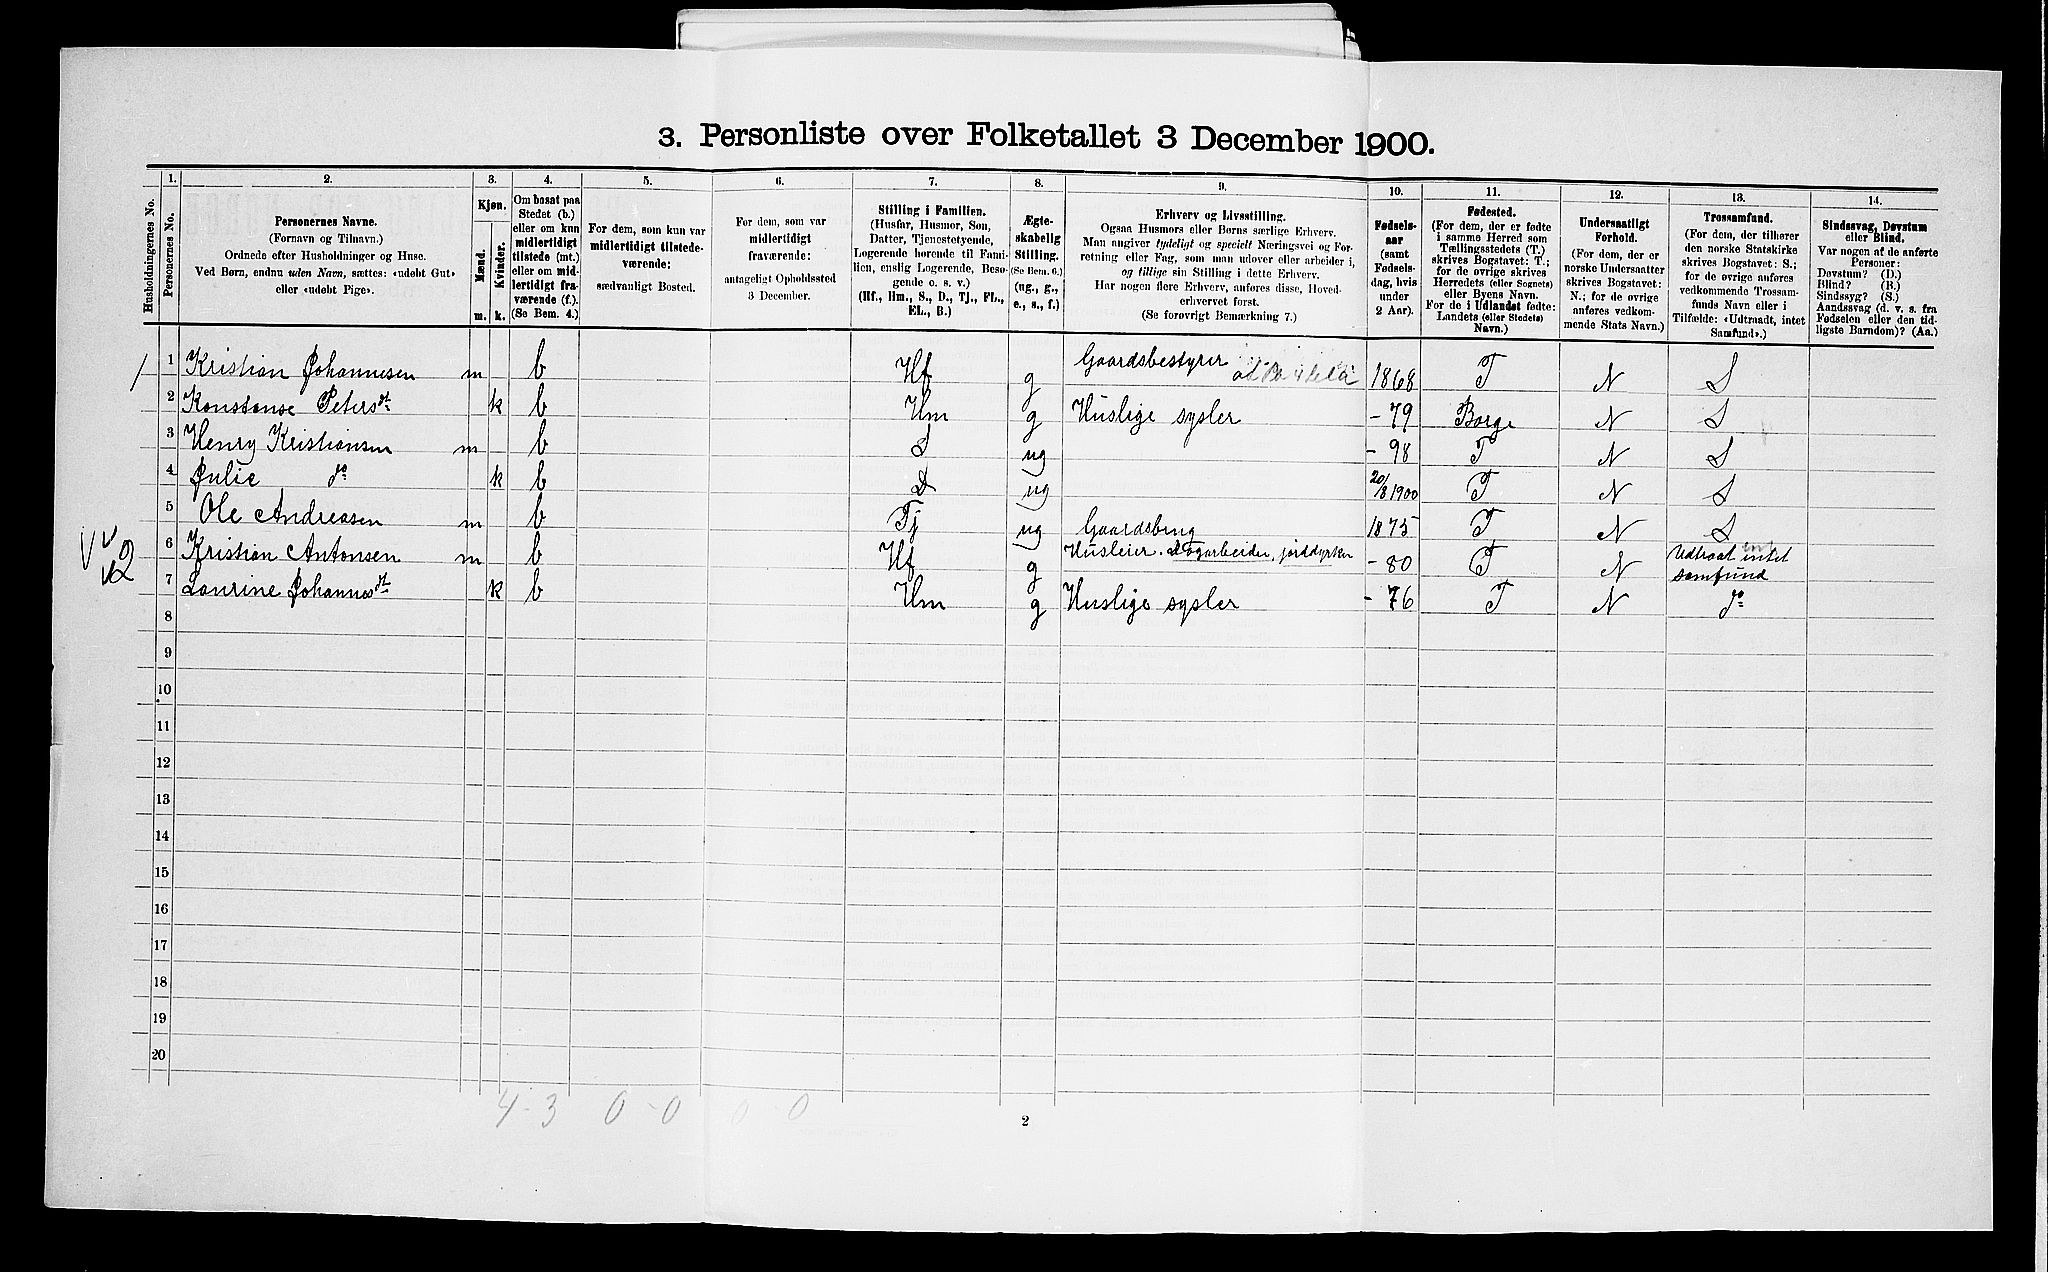 3. Personliste over Folketallet 3 December 1900.
Husholdningernes No.
1.
Personernes No.
2.
Personernes Navne.
(Fornavn og Tilnavn.)
Ordnede efter Husholdninger og Huse.
Ved Børn, endnu uden Navn, sættes: «udøbt Gut»
eller «udøbt Pige».
3.
Kjøn.
Mænd.
Kvinder.
m. k.
4.
Om bosat paa
Stedet (b.)
eller om kun
midlertidigt
tilstede (mt.)
eller om mid-
lertidigt fra-
værende (f.).
(Se Bem. 4.)
5.
For dem, som kun var
midlertidigt tilstede-
værende:
sædvanligt Bosted.
6.
For dem, som var
midlertidigt
fraværende:
antageligt Opholdssted
3 December.
7.
Stilling i Familien.
(Husfar, Husmor, Søn,
Datter, Tjenestetyende,
Logerende hørende til Fami-
lien, enslig Logerende, Besø-
gende o. s. v.)
(Hf., Hm., S., D., Tj., FL.,
EL., B.)
8.
Ægte-
skabelig
Stilling.
(Se Bem. 6.)
(ug., g.,
e., s., f.)
9.
Erhverv og Livsstilling.
Ogsaa Husmors eller Børns særlige Erhverv.
Man angiver tydeligt og specielt Næringsvei og For-
retning eller Fag, som man udøver eller arbeider i,
og tillige sin Stilling i dette Erhverv.
Har nogen flere Erhverv, anføres disse, Hoved-
erhvervet først.
(Se forøvrigt Bemærkning 7.)
10.
Fødsels-
aar
(samt
Fødsels-
dag, hvis
under
2 Aar).
11.
Fødested.
(For dem, der er fødte
i samme Herred som
Tællingsstedets (T.)
skrives Bogstavet: T.;
for de øvrige skrives
Herredets (eller Sognets)
eller Byens Navn.
For de i Udlandet fødte:
Landets (eller Stedets)
Navn.)
12.
Undersaatligt
Forhold.
(For dem, der er
norske Undersaatter
skrives Bogstavet:
N.; for de øvrige
anføres vedkom-
mende Stats Navn.)
13.
Trossamfund.
(For dem, der tilhører
den norske Statskirke
skrives Bogstavet: S.;
for de øvrige anføres
vedkommende Trossam-
funds Navn eller i
Tilfælde: «Udtraadt, intet
Samfund».)
14.
Sindssvag, Døvstum
eller Blind.
Var nogen af de anførte
Personer:
Døvstum? (D.)
Blind? (B.)
Sindssyg? (S.)
Aandssvag (d. v. s. fra
Fødselen eller den tid-
ligste Barndom)? (Aa.)
1 1 Kristian Johannesen m b Hf g Gaardsbestyrer 1868 T N S
2 Konstanse Petersdt k b Hm g Huslige sysler - 79 Borge N S
3 Henry Kristiansen m b S ug - 98 T N S
4 Julie do k b D ug 20/8 1900 T N S
5 Ole Andreasen m b Tj ug Gaardsdreng 1875 T N S
2 6 Kristian Antonsen m b Hf g Husleier. Dagarbeider, jorddyrker - 80 T N Udtraat intet samfund
7 Laurine Johannesdt k b Hm g Huslige sysler - 76 T N do
8
9
10
11
12
13
14
15
16
17
18
19
20
4 - 3 0 - 0 0 - 0
2